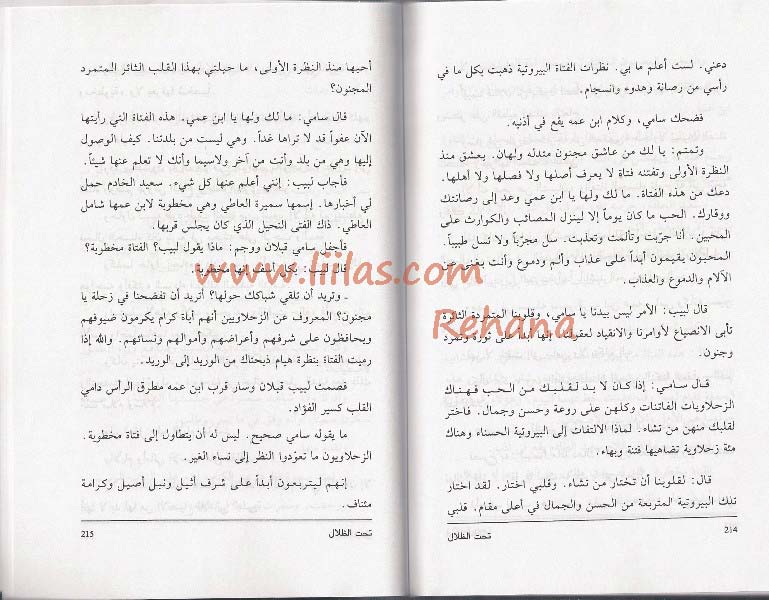 دعني. لست أعلم ما بي. نظرات الفتاة البيروتية ذهبت بكل ما في
رأسي من رصانة وهدوء وانسجام.
فضحك سامي، وكلام ابن عمه يقع في أذنيه.
وتمتم: يا لك من عاشق مجنون مدله ولهان. يعشق منذ
النظرة الأولى وتفتنه فتاة لا يعرف أصلها ولا فصلها ولا أهلها.
دعك من هذه الفتاة. ما لك ولها يا ابن عمي وعد إلى رصانتك
ووقارك. الحب ما كان يوماً إلا لينزل المصائب والكوارث على
المحبين. أنا جرّبت وتألمت وتعذبت. سل مجرّباً ولا تسل طبيباً.
المحبون يقيمون أبداً على عذاب وألم ودموع وأنت بغنى عن
الآلام والدموع والعذاب.
قال لبيب: الأمر ليس بيدنا يا سامي، وقلوبنا المتمردة الثائرة
تأبى الانصياع لأوامرنا والانقياد لعقولنا. إنها أبداً على ثورة وتمرد
وجنون.
قال سامي: إذا كان لا بد لقلبك من الحب فهناك
الزحلاويات الفاتنات وكلهن على روعة وحسن وجمال. فاختر
لقلبك منهن من تشاء. لماذا الالتفات إلى البيروتية الحسناء وهناك
مئة زحلاوية تضاهيها فتنة وبهاء.
قال: لقلوبنا أن تختار من تشاء. وقلبي اختار. لقد اختار
تلك البيروتية المتربعة من الحسن والجمال في أعلى مقام. قلبي
تحت الظلال 214
أحبها منذ النظرة الأولى، ما حيلتي بهذا القلب الثائر المتمرد
المجنون؟
قال سامي: ما لك ولها يا ابن عمي. هذه الفتاة التي رأيتها
الآن عفواً قد لا تراها غداً. وهي ليست من بلدتنا. كيف الوصول
إليها وهي من بلد وأنت من آخر ولاسيما وأنك لا تعلم عنها شيئاً.
فأجاب لبيب: إنني أعلم عنها كل شيء. سعيد الخادم حمل
لي أخبارها. إسمها سميرة العاطي وهي مخطوبة لابن عمها شامل
العاطي. ذاك الفتى النحيل الذي كان يجلس قربها.
فأجفل سامي قبلان ووجم: ماذا يقول لبيب؟ الفتاة مخطوبة؟
قال لبيب: بكل أسف إنها مخطوبة.
ـ وتريد أن تلقي شباكك حولها؟ أتريد أن تفضحنا في زحلة يا
مجنون؟ المعروف عن الزحلاويين أنهم أباة كرام يكرمون ضيوفهم
ويحافظون على شرفهم وأعراضهم وأموالهم ونسائهم. والله إذا
رميت الفتاة بنظرة هيام ذبحناك من الوريد إلى الوريد.
فصمت لبيب قبلان وسار قرب ابن عمه مطرق الرأس دامي
القلب كسير الفؤاد.
ما يقوله سامي صحيح. ليس له أن يتطاول إلى فتاة مخطوبة.
الزحلاويون ما تعوّدوا النظر إلى نساء الغير.
إنهم ليتربعون أبداً على شرف أثيل ونبل أصيل وكرامة
مئناف.
تحت الظلال 215
www.liilas.com
Rehana